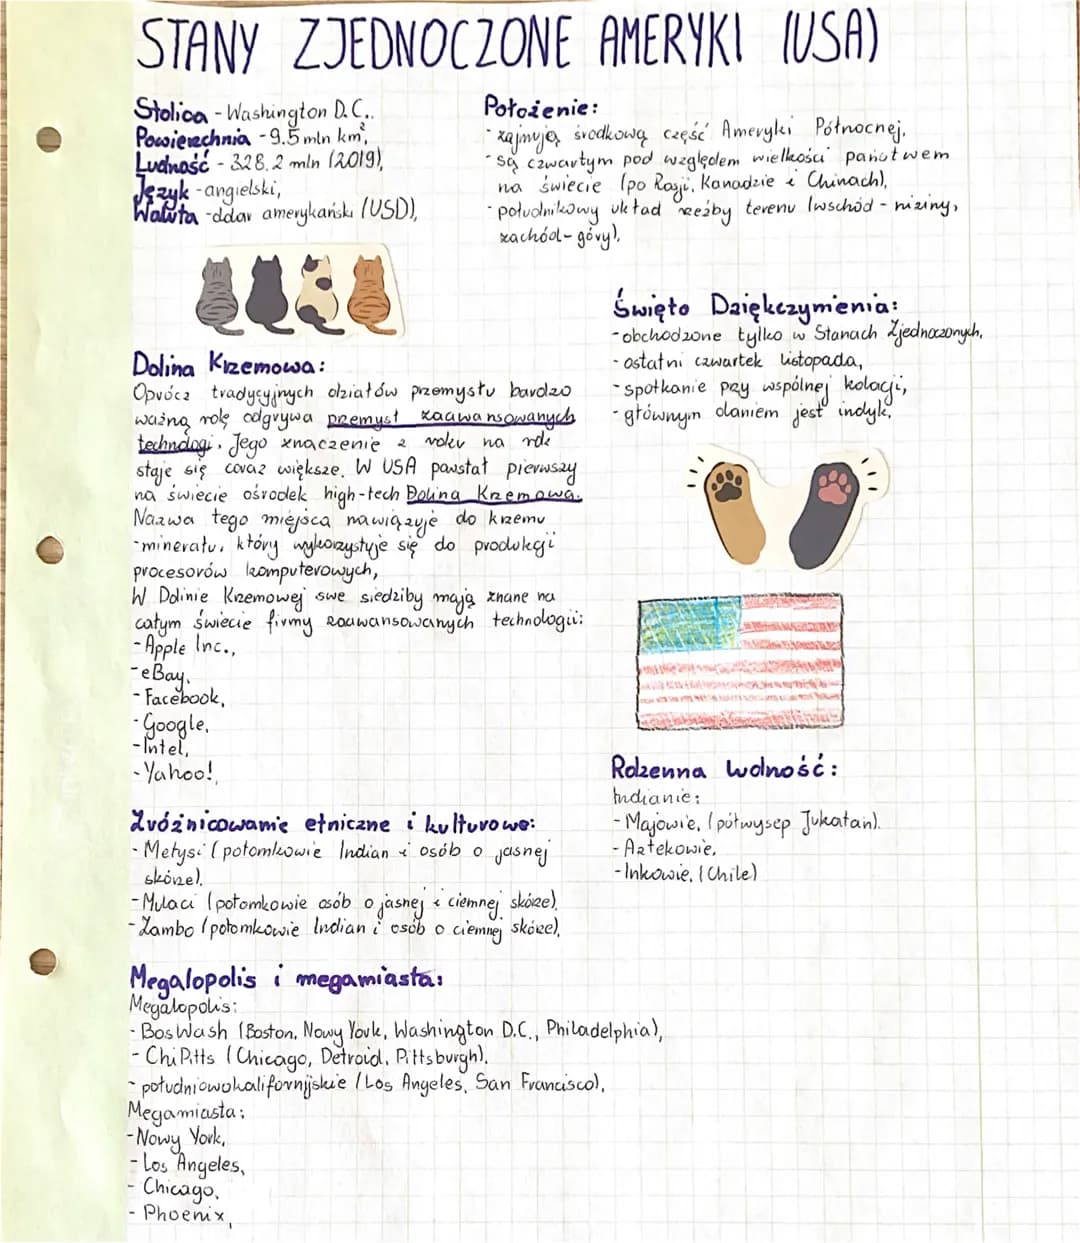 STANY ZJEDNOCZONE AMERYKI (USA)
Stolica - Washington D.C.,
Powierzchnia - 9.5 mln km²,
Ludność - 328.2 mln (2019),
Język - angielski,
Waluta - dolar amerykański (USD),
Położenie:
- zajmują środkową część Ameryki Północnej,
- są czwartym pod względem wielkości państwem
na świecie (po Rosji, Kanadzie i Chinach),
- południkowy układ rzeźby terenu (wschód - niziny,
zachód - góry),
Święto Dziękczynienia:
- obchodzone tylko w Stanach Zjednoczonych,
- ostatni czwartek listopada,
- spotkanie przy wspólnej kolacji,
- głównym daniem jest indyk,
Dolina Krzemowa:
Oprócz tradycyjnych działów przemysłu bardzo
ważną rolę odgrywa przemysł zaawansowanych
technologi. Jego znaczenie z roku na rok
staje się coraz większe. W USA powstał pierwszy
na świecie ośrodek high-tech Dolina Krzemowa.
Nazwa tego miejsca nawiązuje do krzemu
- minerału, który wykorzystuje się do produkcji
procesorów komputerowych,
W Dolinie Krzemowej swe siedziby mają znane na
całym świecie firmy zaawansowanych technologii:
- Apple Inc.,
- eBay,
- Facebook,
- Google,
- Intel,
- Yahoo!,
Rdzenna ludność:
Indianie:
- Majowie, (półwysep Jukatan).
- Aztekowie,
- Inkowie, (Chile)
Zróżnicowanie etniczne i kulturowe:
- Metysi (potomkowie Indian i osób o jasnej
skórze),
- Mulaci (potomkowie osób o jasnej i ciemnej skórze),
- Zambo (potomkowie Indian i osób o ciemnej skórze),
Megalopolis i megamiasta:
Megalopolis:
- BosWash (Boston, Nowy York, Washington D.C., Philadelphia),
- ChiPitts (Chicago, Detroid, Pittsburgh),
- południowokalifornijskie (Los Angeles, San Francisco),
Megamiasta:
- Nowy York,
- Los Angeles,
- Chicago,
- Phoenix,